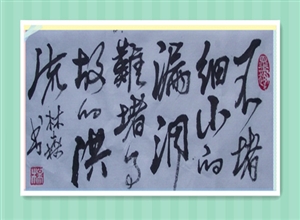 不堵
细小的
漏洞
難堵事
故的洪
流
林森
书